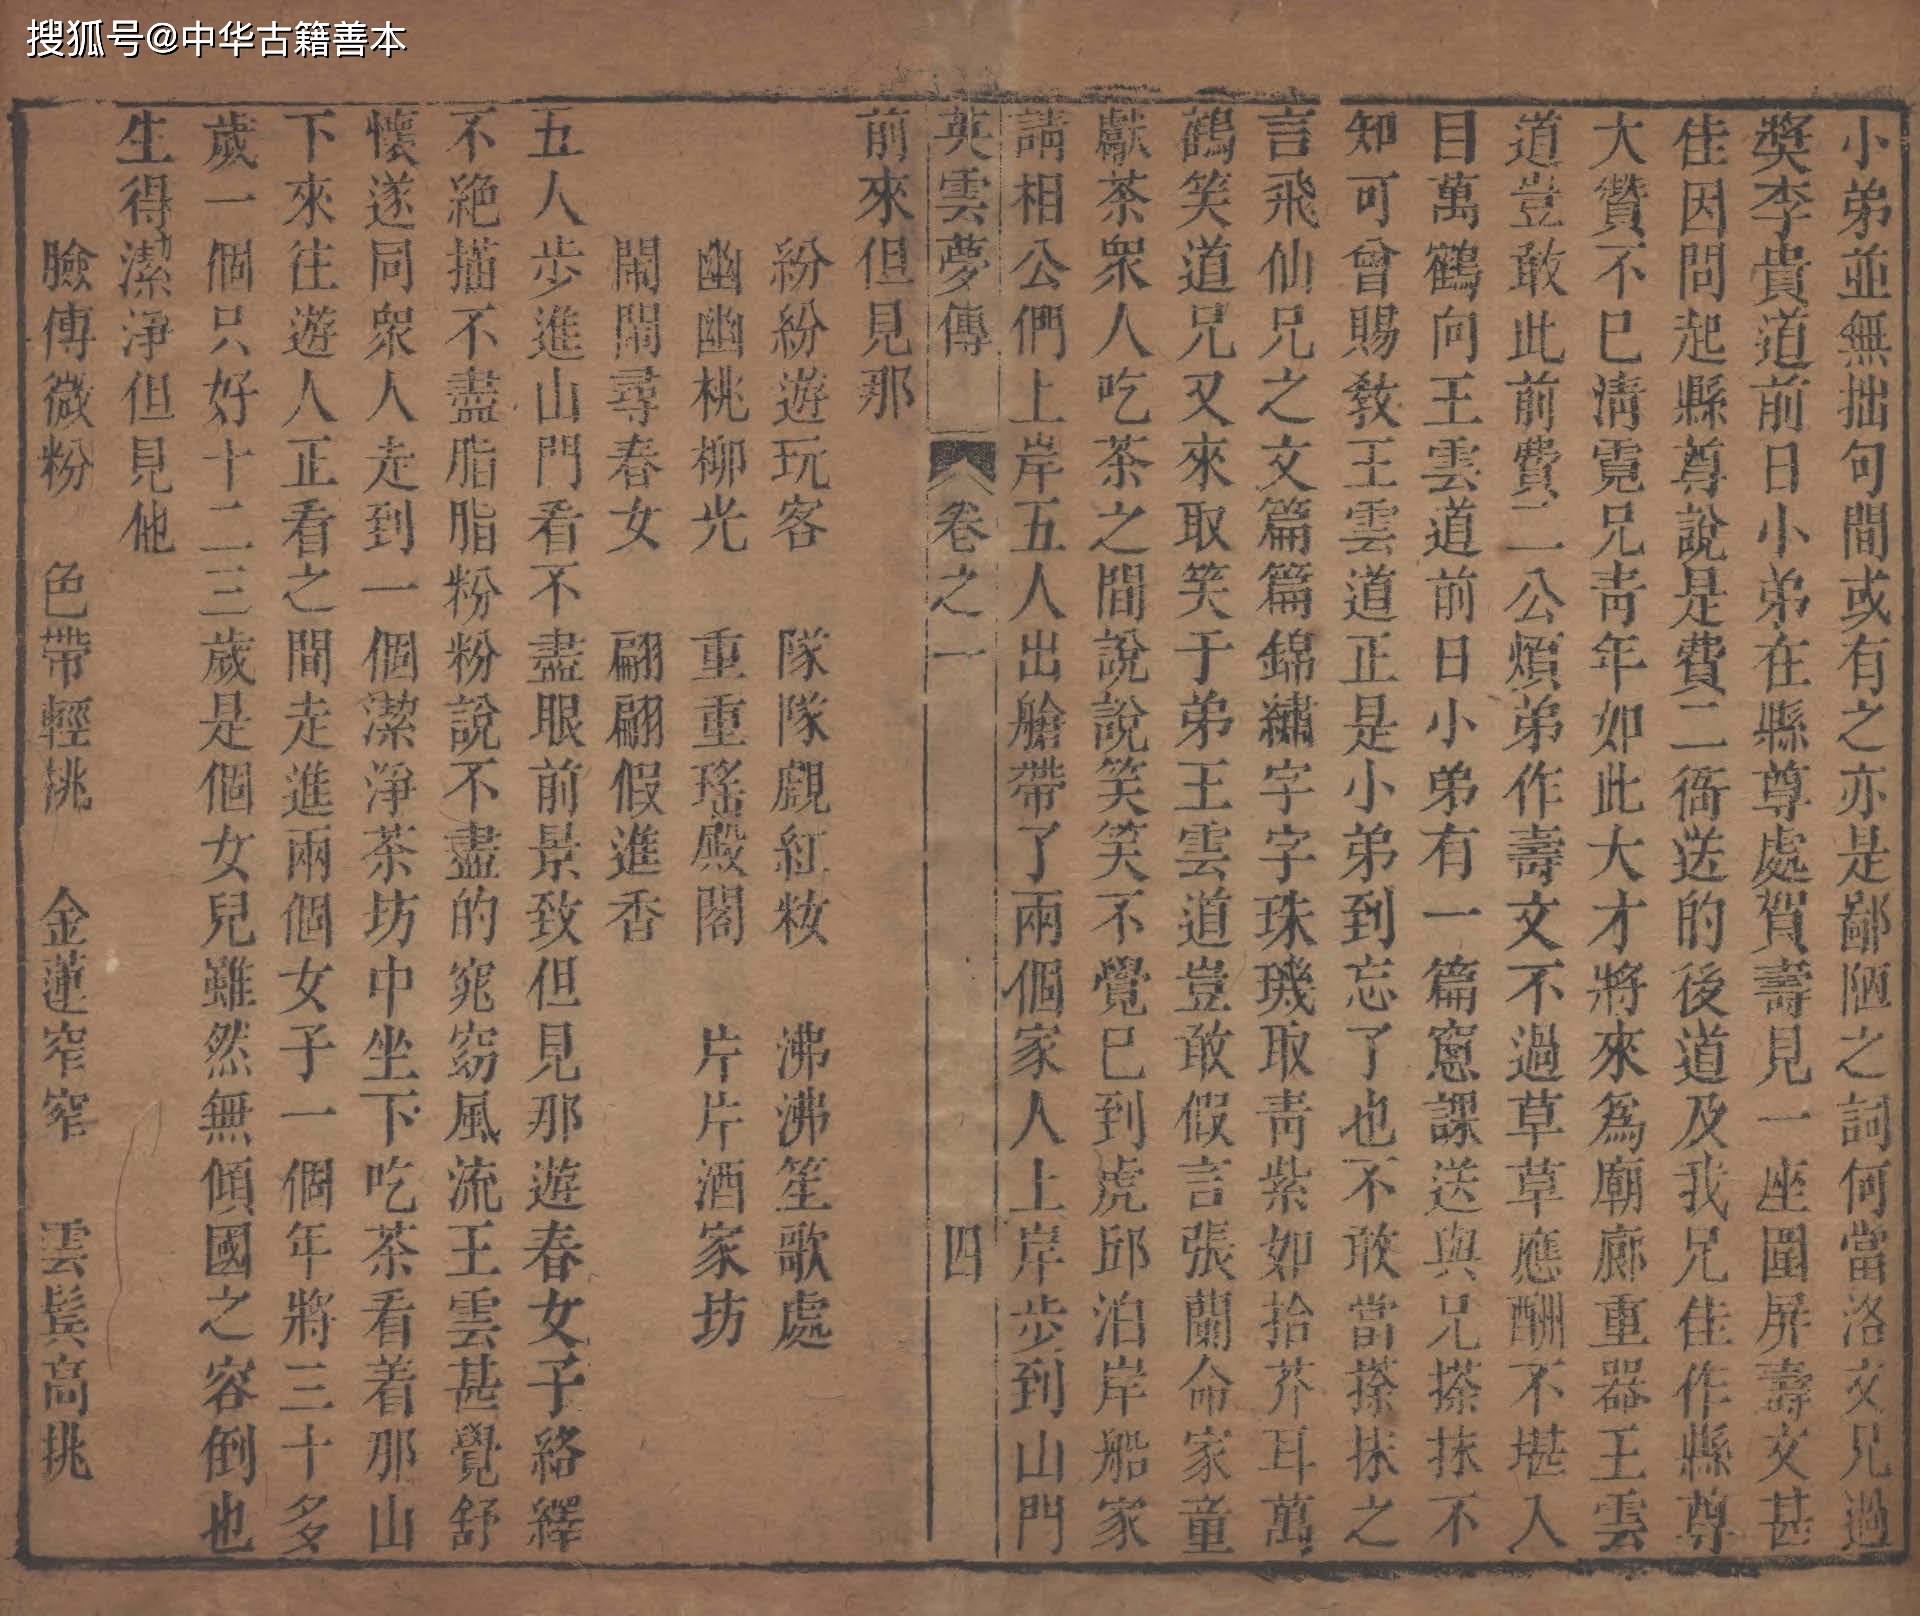 搜狐号@中华古籍善本
小弟並無拙句間或有之亦是鄙陋之詞何當洛文兄過
奬李貴道前日小弟在縣尊處賀壽見一座圍屏壽文甚
佳因問起縣尊說是費二衙送的後道及我兄佳作縣尊
大贊不已淸霓兄靑年如此大才將來爲廟廊重器王雲
道豈敢此前費二公煩弟作壽文不過草草應酬不堪入
目萬鶴向王雲道前日小弟有一篇窻課送與兄搽抹不
知可曾賜敎王雲道正是小弟到忘了也不敢當搽抹之
言飛仙兄之文篇篇錦繡字字珠璣取靑紫如拾芥耳萬
鶴笑道兄又來取笑于弟王雲道豈敢假言張蘭命家童
獻茶衆人吃茶之間說說笑笑不覺已到虎邱泊岸船家
請相公們上岸五人出艙帶了兩個家人上岸步到山門
英雲夢傳 卷之一 四
前來但見那
紛紛遊玩客 隊隊覷紅妝 沸沸笙歌處
幽幽桃柳光 重重瑤殿閣 片片酒家坊
鬧鬧尋春女 翩翩假進香
五人步進山門看不盡眼前景致但見那遊春女子絡繹
不絶描不盡脂脂粉粉說不盡的窕窈風流王雲甚覺舒
懷遂同衆人走到一個潔淨茶坊中坐下吃茶看着那山
下來往遊人正看之間走進兩個女子一個年將三十多
歲一個只好十二三歲是個女兒雖然無傾國之容倒也
生得潔淨但見他
臉傅微粉 色帶輕桃 金蓮窄窄 雲鬂高挑